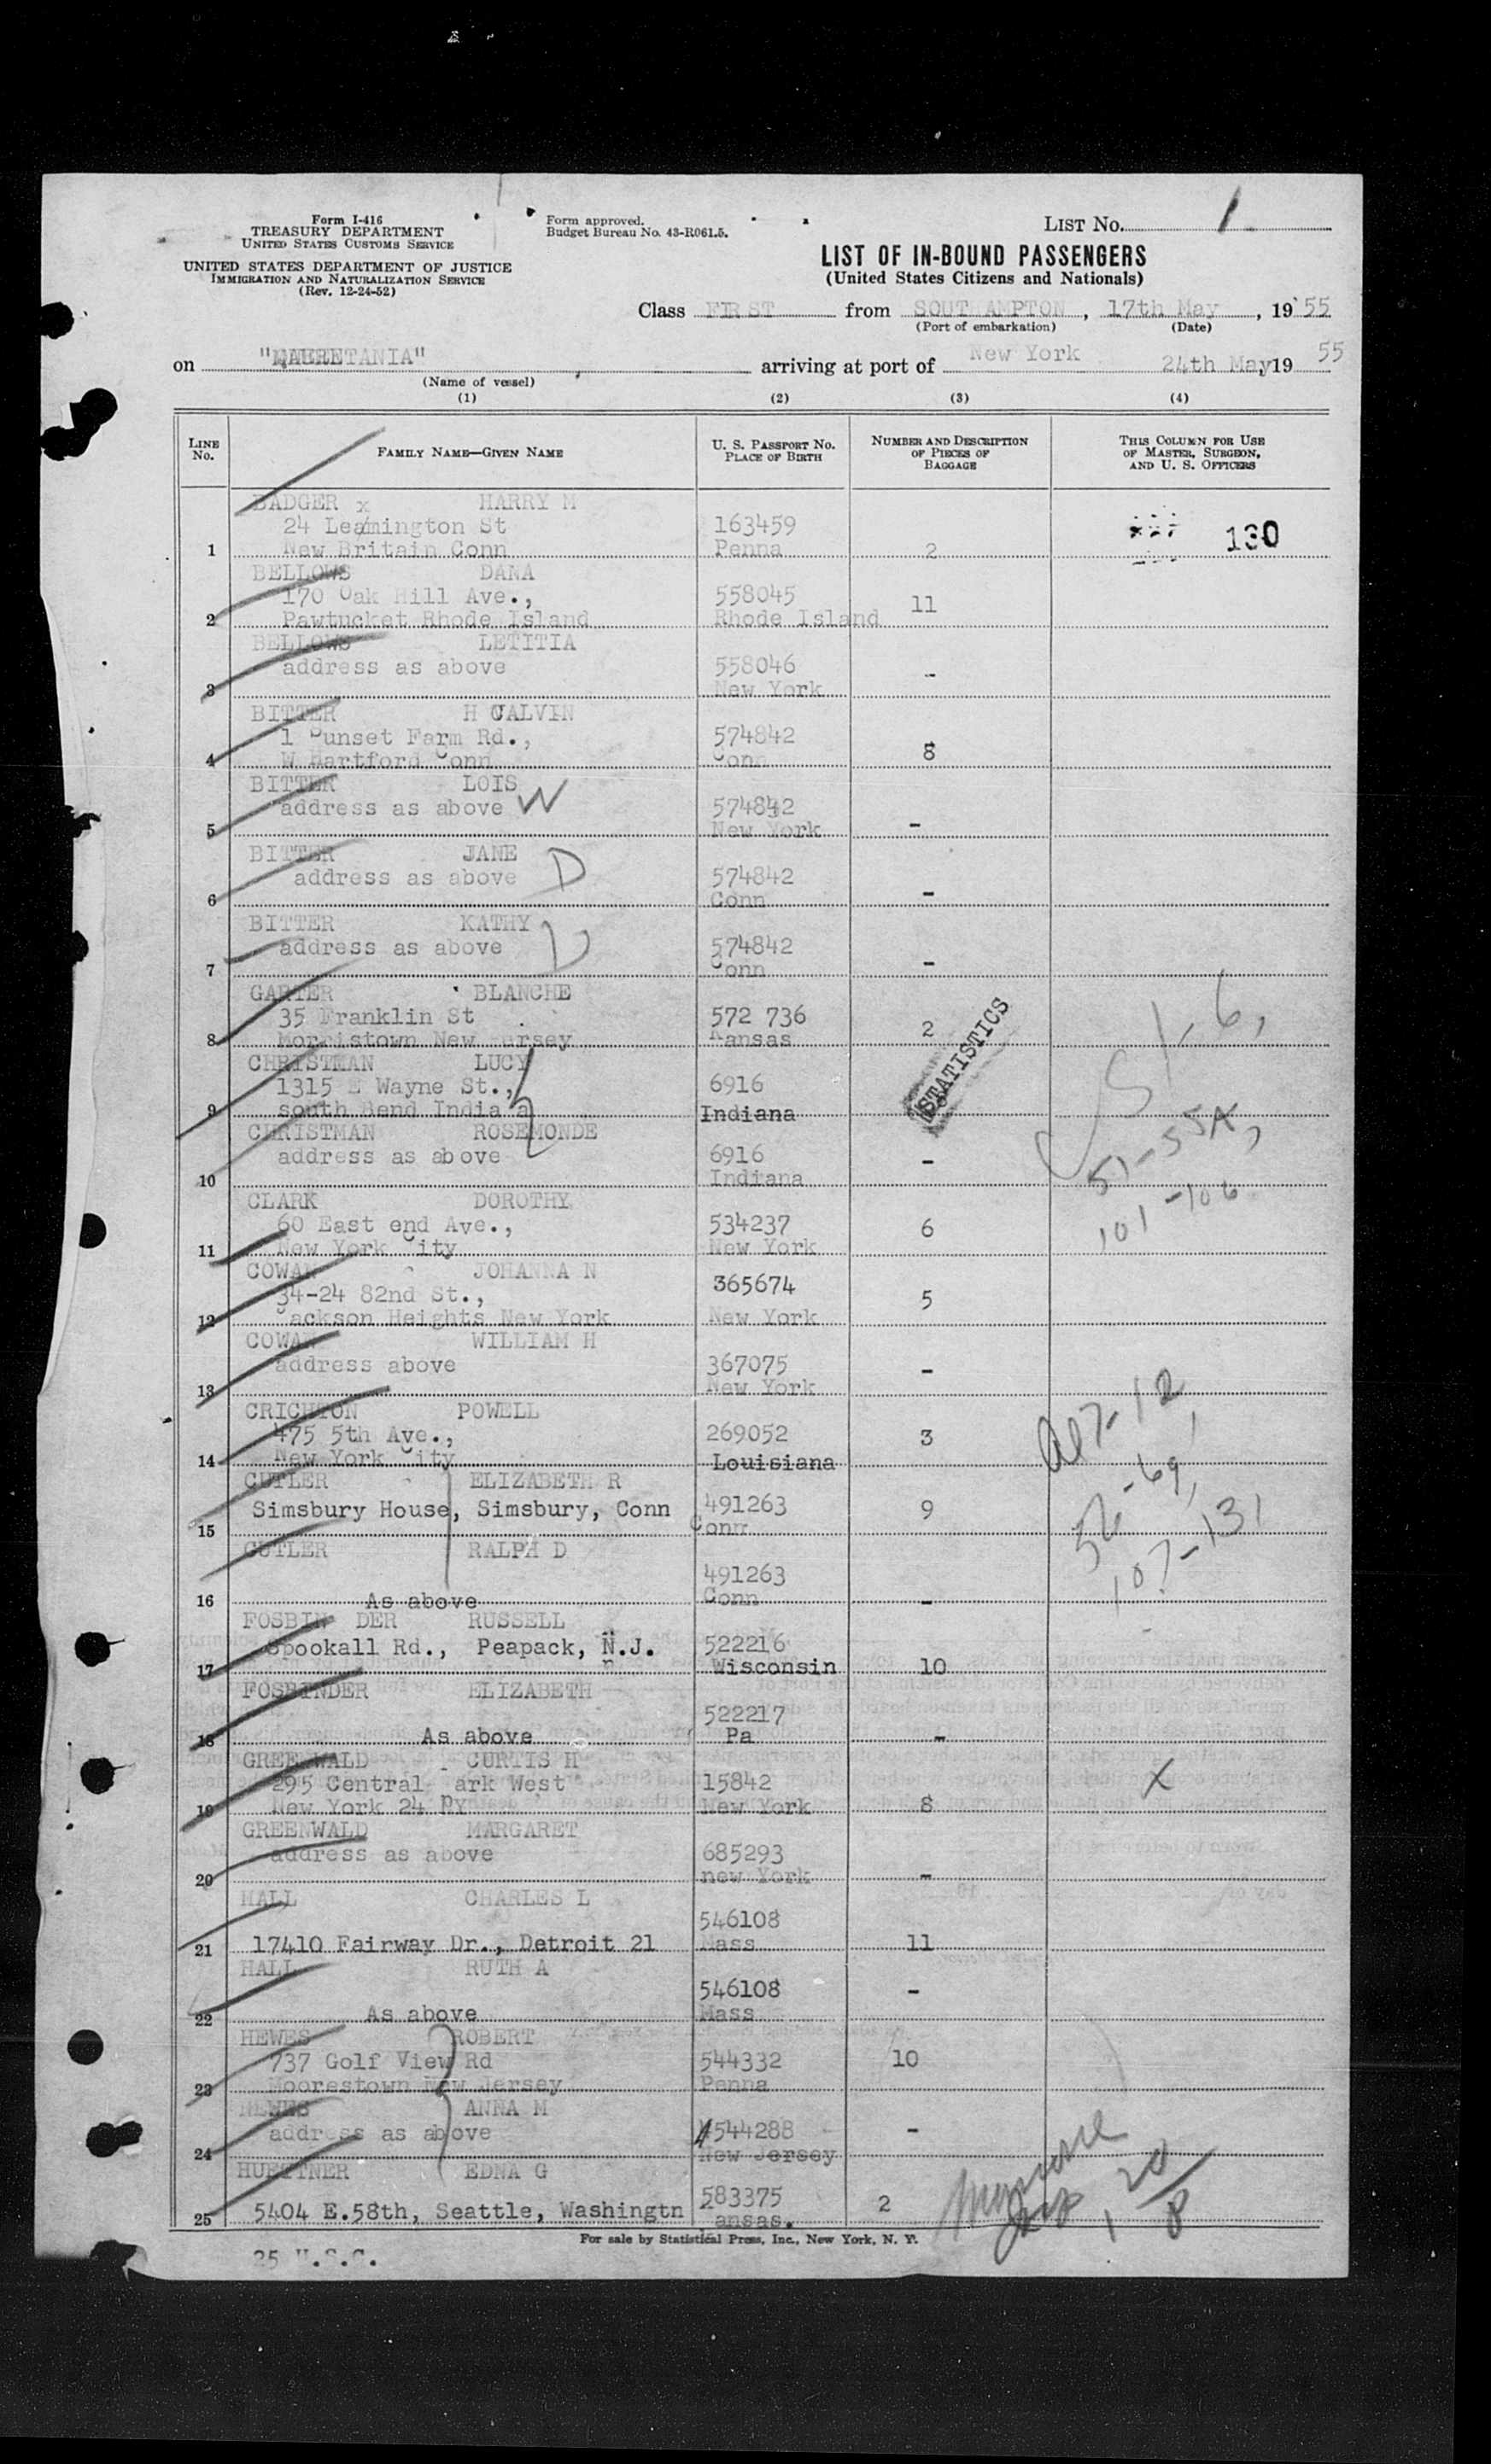 Form I-416
TREASURY DEPARTMENT
UNITED STATES CUSTOMS SERVICE
UNITED STATES DEPARTMENT OF JUSTICE
IMMIGRATION AND NATURALIZATION SERVICE
(Rev. 12-24-52)
Form approved.
Budget Bureau No. 43-R061.5.
LIST No. 1
LIST OF IN-BOUND PASSENGERS
(United States Citizens and Nationals)
Class FIRST from SOUTHAMPTON, 17th May, 1955
(Port of embarkation) (Date)
on "MAURETANIA" arriving at port of New York 24th May 1955
(Name of vessel)
(1) (2) (3) (4)
LINE No. FAMILY NAME—GIVEN NAME U. S. PASSPORT No. PLACE OF BIRTH NUMBER AND DESCRIPTION OF PIECES OF BAGGAGE THIS COLUMN FOR USE OF MASTER, SURGEON, AND U. S. OFFICERS
BADGER x HARRY M
24 Leamington St 163459 130
1 New Britain Conn Penna 2
BELLOWS DANA
170 Oak Hill Ave., 558045 11
2 Pawtucket Rhode Island Rhode Island
BELLOWS LETITIA
address as above 558046 -
3 New York
BITTER H CALVIN
1 Sunset Farm Rd., 574842 8
4 W Hartford Conn Conn
BITTER LOIS
address as above W 574842
5 New York -
BITTER JANE
address as above D 574842
6 Conn -
BITTER KATHY
address as above D 574842
7 Conn -
GARTER BLANCHE
35 Franklin St 572 736 2
8 Morristown New Jersey Kansas
CHRISTMAN LUCY
1315 E Wayne St., 6916
STATISTICS
9 south Bend India a Indiana
CHRISTMAN ROSEMONDE
address as above 6916 -
10 Indiana
CLARK DOROTHY
60 East end Ave., 534237 6
11 New York City New York
COWAN JOHANNA N
34-24 82nd St., 365674 5
12 Jackson Heights New York New York
COWAN WILLIAM H
address above 367075 -
13 New York
CRICHTON POWELL
475 5th Ave., 269052 3
14 New York City Louisiana
CUTLER ELIZABETH R
Simsbury House, Simsbury, Conn 491263 9
15 Conn
CUTLER RALPH D
491263
16 As above Conn -
FOSBIN DER RUSSELL
Spookall Rd., Peapack, N.J. 522216
17 Wisconsin 10
FOSBINDER ELIZABETH
522217
18 As above Pa -
GREENWALD CURTIS H
295 Central ark West 15842 X
19 New York 24 NY New York 8
GREENWALD MARGARET
address as above 685293
20 new York -
HALL CHARLES L
546108
21 17410 Fairway Dr., Detroit 21 Mass 11
HALL RUTH A
546108 -
22 As above Mass
HEWES ROBERT
737 Golf View Rd 544332 10
23 Moorestown New Jersey Penna
HEWES ANNA M
address as above 544288 -
24 New Jersey
HUETTNER EDNA G
583375
25 5404 E.58th, Seattle, Washingtn ansas. 2
For sale by Statistical Press, Inc., New York, N. Y.
25 U.S.C.